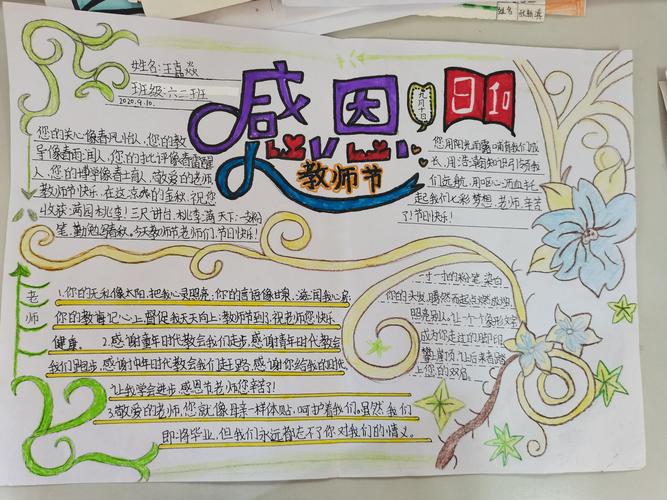 姓名:王嘉焱
班级:六二班
2020.9.10.
感恩
教师节
九月十日
9 10
您的关心像春风怡人,您的教
导像春雨润人,您的批评像春雷醒
人,您的博学像春土育人,敬爱的老师
教师节快乐,在这凉爽的金秋,祝您
收获:满园桃李!三尺讲台,桃李满天下;一支粉
笔,勤勉终春秋。今天教师节老师们,节日快乐!
您用阳光雨露哺育我们成
长,用浩瀚知识引领我
们远航,用呕心沥血托
起我们七彩梦想,老师,辛苦
了!节日快乐!
老师
1.你的无私像太阳,把我心灵照亮;你的言语像甘泉,滋润我心房;
你的教诲记心上,督促我天天向上;教师节到,祝老师您快乐
健康. 2.感谢童年时代教会我们走步,感谢青年时代教会
我们跑步,感谢中年时代教会我们赶路,感谢你给我的时代
让我学会进步,感恩节老师您辛苦了!
3.敬爱的老师,您就像母亲一样体贴,呵护着我们。虽然我们
即将毕业,但我们永远都忘不了你对我们的情义。
一寸一寸的粉笔,染白
你的头发,蹒然而起点燃成烛,
照亮别人。让一个个象形文字
成为你走过的脚印,
攀崖顶,让后来者踏
上您的双肩
姓名